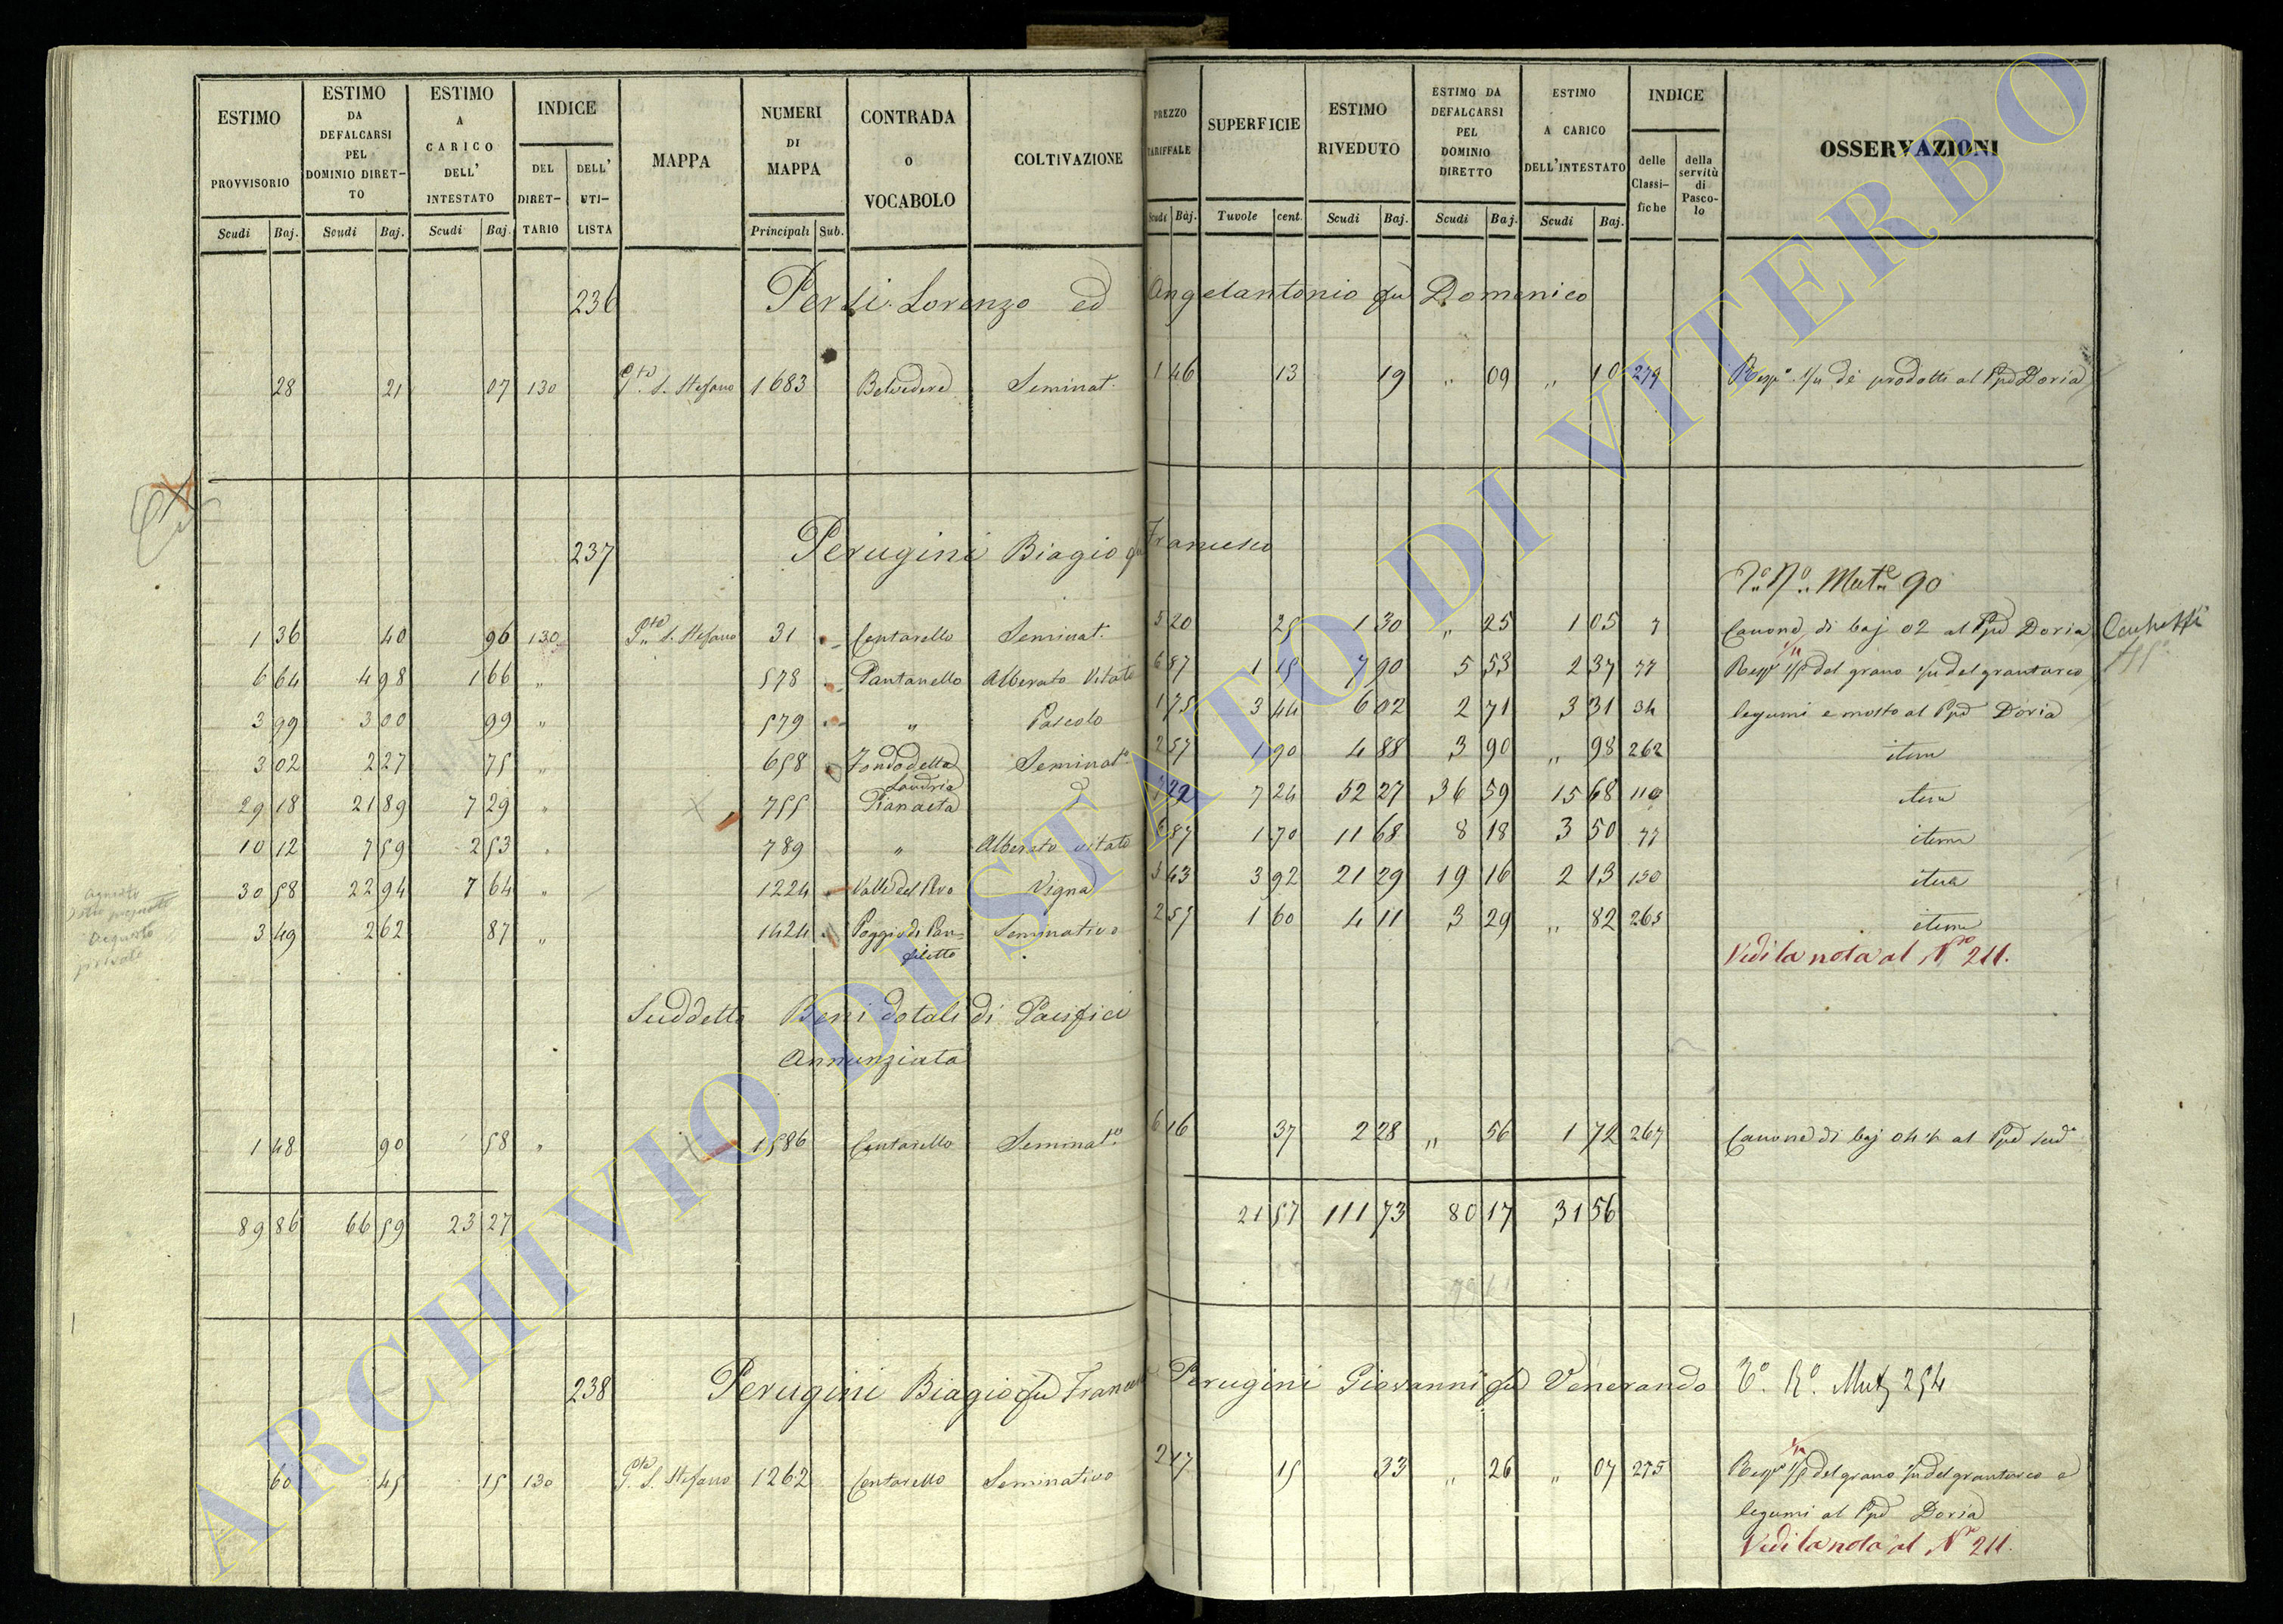 ESTIMO PROVVISORIO Scudi Baj.
ESTIMO DA DEFALCARSI PEL DOMINIO DIRET-TO Scudi Baj.
ESTIMO A CARICO DELL' INTESTATO Scudi Baj.
INDICE DEL DIRET-TARIO DELL' UTI-LISTA
MAPPA
NUMERI DI MAPPA Principali Sub.
CONTRADA O VOCABOLO
COLTIVAZIONE
PREZZO TARIFFALE Scudi Baj.
SUPERFICIE Tuvole cent.
ESTIMO RIVEDUTO Scudi Baj.
ESTIMO DA DEFALCARSI PEL DOMINIO DIRETTO Scudi Baj.
ESTIMO A CARICO DELL'INTESTATO Scudi Baj.
INDICE delle Classi-fiche della servitù di Pasco-lo
OSSERVAZIONI
236 Persi Lorenzo ed Angelantonio fu Domenico
28 21 07 130 P.to S. Stefano 1683 Belvedere Seminat. 1 46 13 19 " 09 " 10 279 Risp. 1/4 dè prodotti al Ppe Doria
237 Perugini Biagio fu Francesco
T.o N.o Mut.e 90
1 36 40 96 130 P.to S. Stefano 31 Centarello Seminat. 5 20 25 1 30 " 25 1 05 7 Canone di baj 02 al Ppe Doria
6 64 4 98 1 66 " 578 Pantanello Alberato Vitato 6 87 1 15 7 90 5 53 2 37 77 Risp. 1/5 del grano 1/4 del granturco
3 99 3 00 99 " 579 " Pascolo 1 75 3 44 6 02 2 71 3 31 34 legumi e mosto al Ppe Doria
3 02 2 27 75 " 658 Fondo della Seminat. 2 57 1 90 4 88 3 90 " 98 262 item
29 18 21 89 7 29 " 755 Pianaeta d 7 22 7 24 52 27 36 59 15 68 110 item
10 12 7 59 2 53 " 789 " Alberato vitato 6 87 1 70 11 68 8 18 3 50 77 item
30 58 22 94 7 64 " 1224 Valle del Pero Vigna 5 43 3 92 21 29 19 16 2 13 130 item
3 49 2 62 87 " 1424 Poggio di Pan- Seminativo 2 57 1 60 4 11 3 29 " 82 265 item
filetto
Vedi la nota al N.ro 211.
Suddetto Beni dotali di Pacifici
Annunziata
1 48 90 58 " 1586 Centarello Seminat.o 6 16 37 2 28 " 56 1 72 267 Canone di baj 04 1/2 al Ppe sud.o
89 86 66 59 23 27 21 57 111 73 80 17 31 56
238 Perugini Biagio fu Francesco Perugini Giovanni fu Venerando T.o R.o Mut. 254
60 45 15 130 P.to S. Stefano 1262 Centarello Seminativo 2 47 15 33 " 26 " 07 275 Risp. 1/5 del grano 1/4 del granturco e
legumi al Ppe Doria
Vedi la nota al N.ro 211.
ARCHIVIO DI STATO DI VITERBO